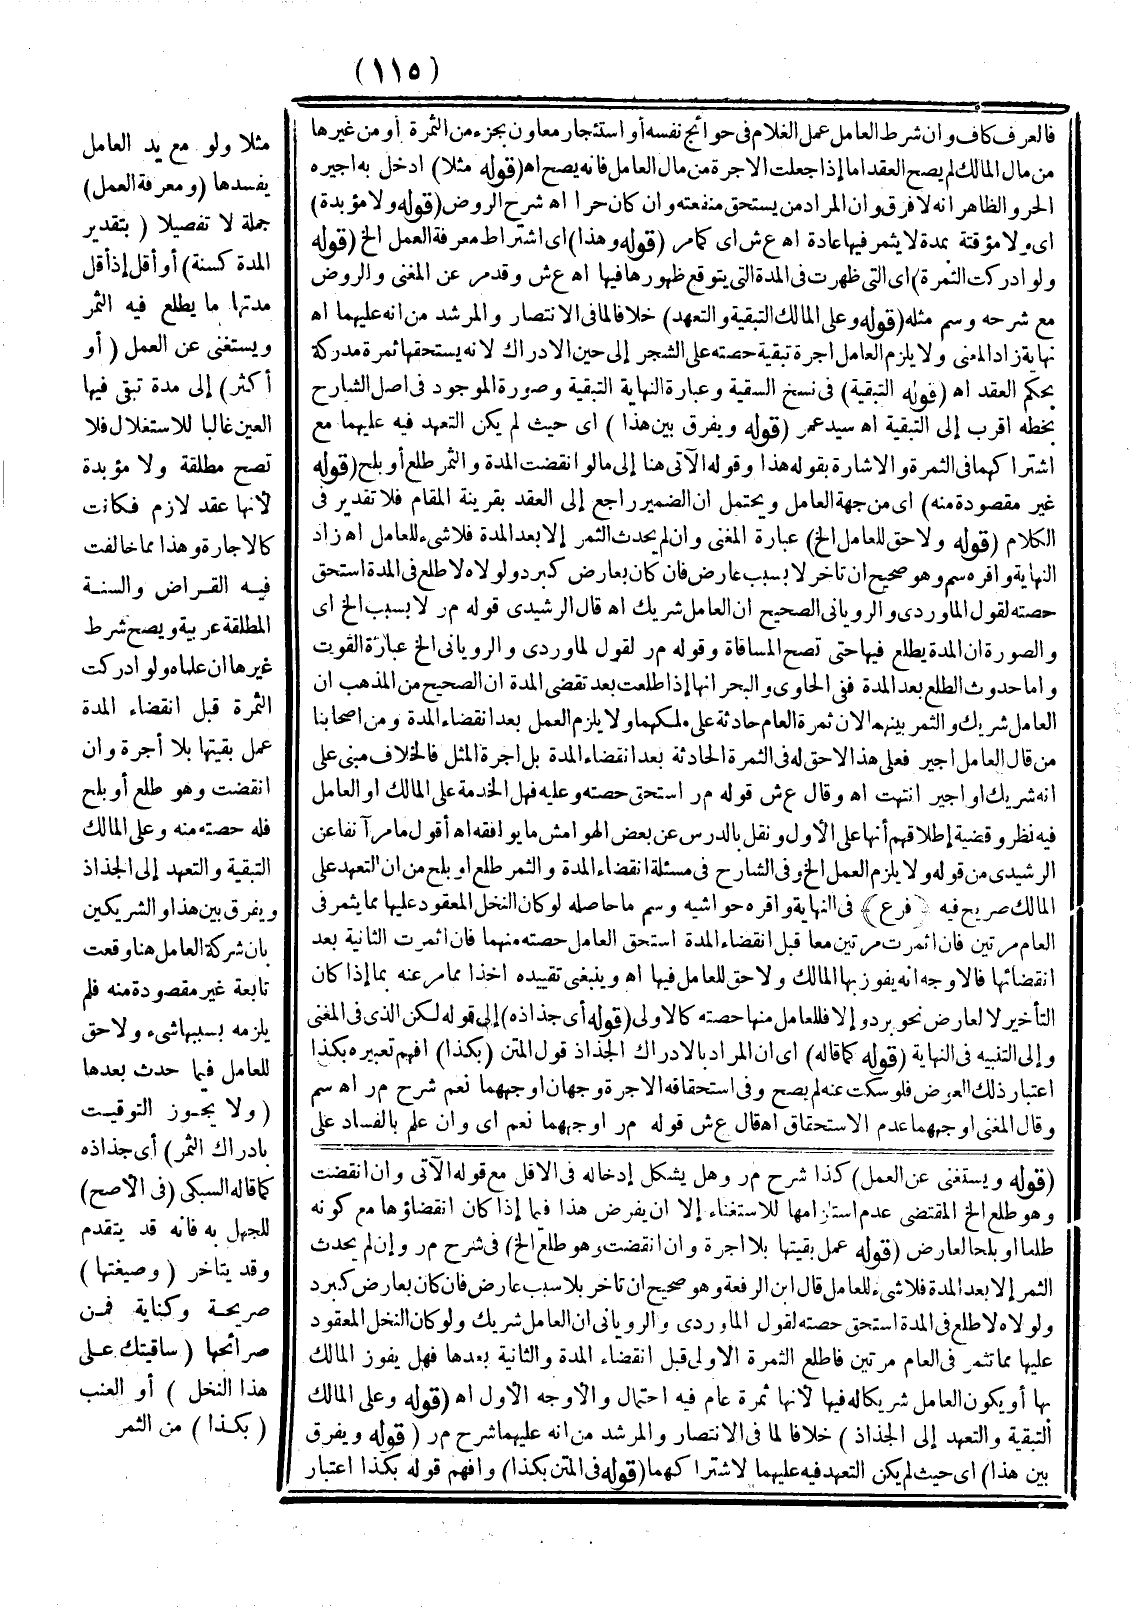 (١١٥)
فالعرف كاف وان شرط العامل عمل الغلام فى حوائج نفسه أو استئجار معاون بجزء من الثمرة أو من غيرها
من مال المالك لم يصح العقد اما إذا جعلت الاجرة من مال العامل فانه يصح اه (قوله مثلا) ادخل به اجيره
الحر والظاهر انه لا فرق وان المراد من يستحق منفعته وان كان حرا اه شرح الروض (قوله ولا مؤبدة)
اى ولا مؤقتة بمدة لا يثمر فيها عادة اه ع ش اى كما مر (قوله وهذا) اى اشتراط معرفة العمل الخ (قوله
ولو ادركت الثمرة) اى التى ظهرت فى المدة التى يتوقع ظهورها فيها اه ع ش وقد مر عن المغنى والروض
مع شرحه وسم مثله (قوله وعلى المالك التبقية والتعهد) خلافا لما فى الانتصار والمرشد من انه عليهما اه
نهاية زاد المغنى ولا يلزم العامل اجرة تبقية حصته على الشجر إلى حين الادراك لانه يستحقها ثمرة مدركة
بحكم العقد اه (قوله التبقية) فى نسخ السقية وعبارة النهاية التبقية وصورة الموجود فى اصل الشارح
بخطه اقرب إلى التبقية اه سيد عمر (قوله ويفرق بين هذا) اى حيث لم يكن التعهد فيه عليهما مع
اشتراكهما فى الثمرة والاشارة بقوله هذا وقوله الآتى هنا إلى ما لو انقضت المدة والثمر طلع أو بلح (قوله
غير مقصودة منه) اى من جهة العامل ويحتمل ان الضمير راجع إلى العقد بقرينة المقام فلا تقدير فى
الكلام (قوله ولا حق للعامل الخ) عبارة المغنى وان لم يحدث الثمر إلا بعد المدة فلا شىء للعامل اه زاد
النهاية واقره سم وهو صحيح ان تاخر لا بسبب عارض فان كان بعارض كبرد ولولاه لا طلع فى المدة استحق
حصته لقول الماوردى والرويانى الصحيح ان العامل شريك اه قال الرشيدى قوله م ر لا بسبب الخ اى
والصورة ان المدة يطلع فيها حتى تصح المساقاة وقوله م ر لقول لماوردى والرويانى الخ عبارة القوت
واما حدوث الطلع بعد المدة ففى الحاوى والبحر انها إذا طلعت بعد تقضى المدة ان الصحيح من المذهب ان
العامل شريك والثمر بينهما لان ثمرة العام حادثة على ملكهما ولا يلزم العمل بعد انقضاء المدة ومن اصحابنا
من قال العامل اجير فعلى هذا لا حق له فى الثمرة الحادثة بعد انقضاء المدة بل اجرة المثل فالخلاف مبنى على
انه شريك او اجير انتهت اه وقال ع ش قوله م ر استحق حصته وعليه فهل الخدمة على المالك او العامل
فيه نظر وقضية إطلاقهم أنها على الأول ونقل بالدرس عن بعض الهوامش ما يوافقه اه أقول ما مر آنفا عن
الرشيدى من قوله ولا يلزم العمل الخ وفى الشارح فى مسئلة انقضاء المدة والثمر طلع او بلح من ان التعهد على
المالك صريح فيه ﴿فرع﴾ فى النهاية واقره حواشيه وسم ما حاصله لو كان النخل المعقود عليها مما يثمر فى
العام مرتين فان اثمرت مرتين معا قبل انقضاء المدة استحق العامل حصته منهما فان اثمرت الثانية بعد
انقضائها فالاوجه انه يفوز بها المالك ولا حق للعامل فيها اه وينبغى تقييده اخذا مما مر عنه بما إذا كان
التأخير لا لعارض نحو برد وإلا فللعامل منها حصته كالاولى (قوله أى جذاذه) إلى قوله لكن الذى فى المغنى
وإلى التنبيه فى النهاية (قوله كما قاله) اى ان المراد بالادراك الجذاذ قول المتن (بكذا) افهم تعبيره بكذا
اعتبار ذلك العوض فلو سكت عنه لم يصح وفى استحقاقه الاجرة وجهان اوجههما نعم شرح م ر اه سم
وقال المغنى اوجههما عدم الاستحقاق اه قال ع ش قوله م ر اوجههما نعم اى وان علم بالفساد على
(قوله ويستغنى عن العمل) كذا شرح م ر وهل يشكل إدخاله فى الاقل مع قوله الآتى وان انقضت
وهو طلع الخ المقتضى عدم استلزامها للاستغناء إلا ان يفرض هذا فيما إذا كان انقضاؤها مع كونه
طلعا او بلحا لعارض (قوله عمل بقيتها بلا اجرة وان انقضت وهو طلع الخ) فى شرح م ر وإن لم يحدث
الثمر إلا بعد المدة فلا شىء للعامل قال ابن الرفعة وهو صحيح ان تاخر بلا سبب عارض فان كان بعارض كبرد
ولولاه لا طلع فى المدة استحق حصته لقول الماوردى والرويانى ان العامل شريك ولو كان النخل المعقود
عليها مما تثمر فى العام مرتين فاطلع الثمرة الاولى قبل انقضاء المدة والثانية بعدها فهل يفوز المالك
بها أو يكون العامل شريكا له فيها لأنها ثمرة عام فيه احتمال والأوجه الأول اه (قوله وعلى المالك
التبقية والتعهد إلى الجذاذ) خلافا لما فى الانتصار والمرشد من انه عليهما شرح م ر (قوله ويفرق
بين هذا) اى حيث لم يكن التعهد فيه عليهما لاشتراكهما (قوله فى المتن بكذا) وافهم قوله بكذا اعتبار
مثلا ولو مع يد العامل
يفسدها (ومعرفة العمل)
جملة لا تفصيلا (بتقدير
المدة كسنة) أو أقل إذ أقل
مدتها ما يطلع فيه الثمر
ويستغنى عن العمل (أو
أكثر) إلى مدة تبقى فيها
العين غالبا للاستغلال فلا
تصح مطلقة ولا مؤبدة
لأنها عقد لازم فكانت
كالاجارة وهذا مما خالفت
فيه القراض والسنة
المطلقة عربية ويصح شرط
غيرها ان علماه ولو ادركت
الثمرة قبل انقضاء المدة
عمل بقيتها بلا أجرة وان
انقضت وهو طلع أو بلح
فله حصته منه وعلى المالك
التبقية والتعهد إلى الجذاذ
ويفرق بين هذا والشريكين
بان شركة العامل هنا وقعت
تابعة غير مقصودة منه فلم
يلزمه بسببها شىء ولا حق
للعامل فيما حدث بعدها
(ولا يجوز التوقيت
بادراك الثمر) أى جذاذه
كما قاله السبكى (فى الأصح)
للجهل به فانه قد يتقدم
وقد يتاخر (وصيغتها)
صريحة وكناية فمن
صرائحها (ساقيتك على
هذا النخل) أو العنب
(بكذا) من الثمر